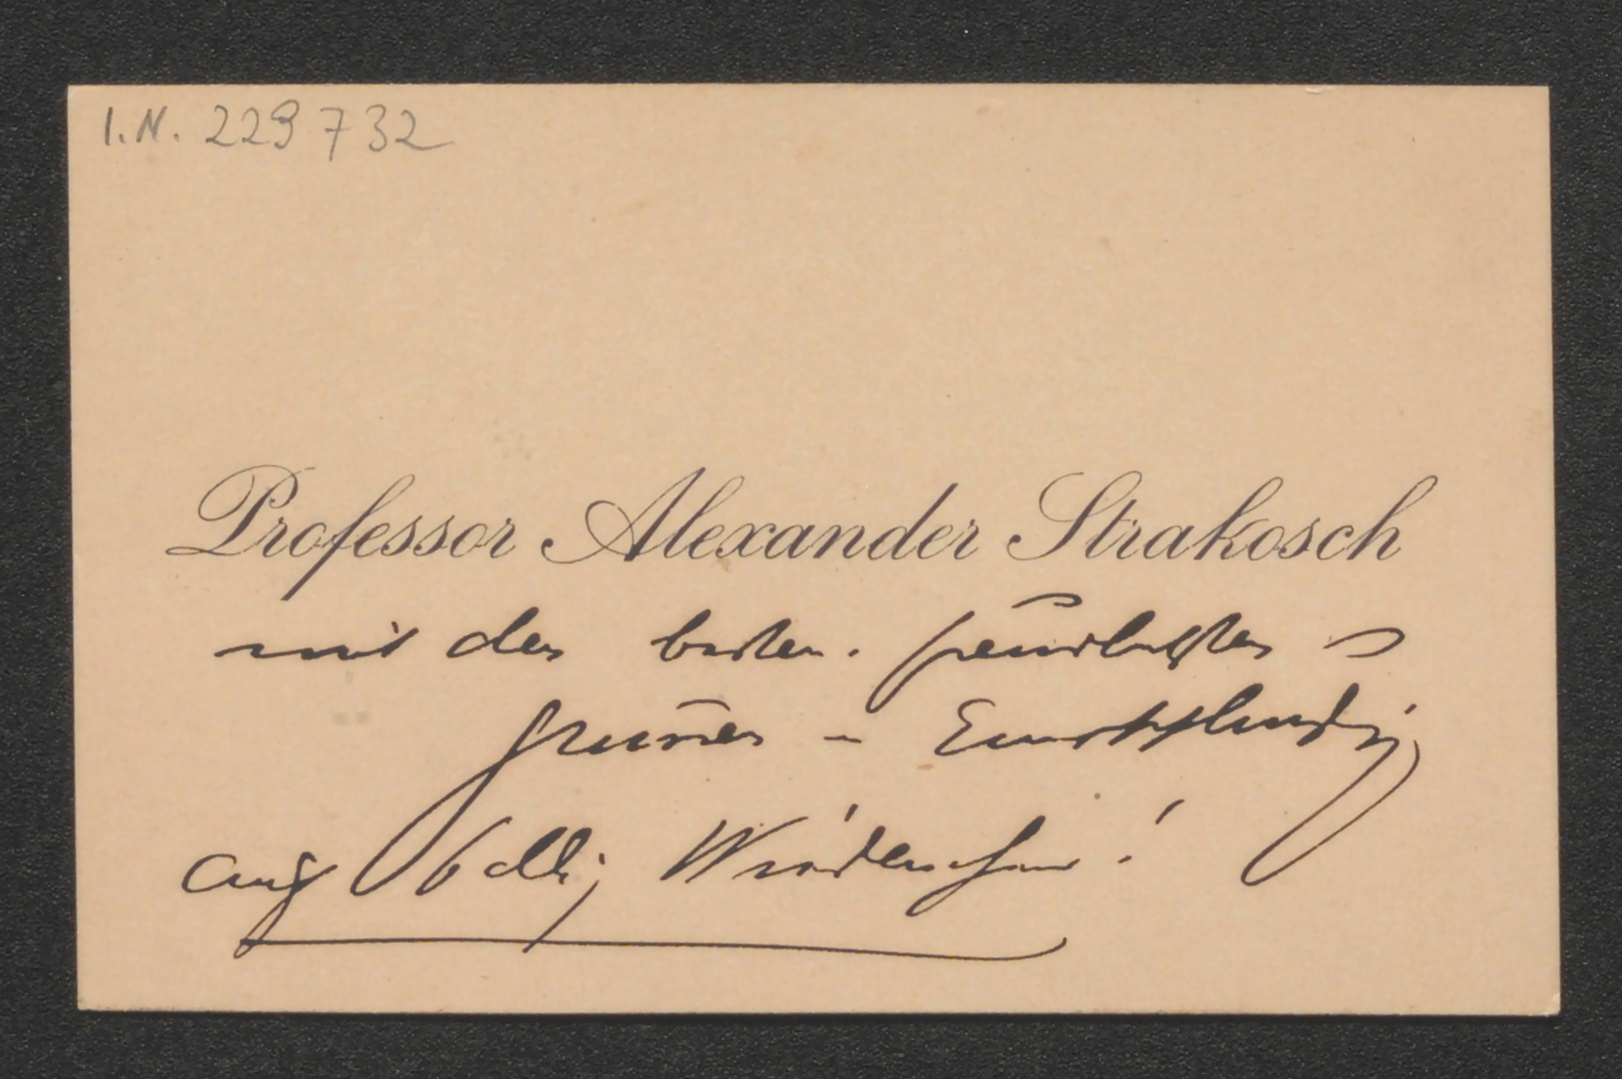 I.N. 229732
Professor Alexander Strakosch
mit den besten. freundlichsten
Grüssen –
auf baldig Wiedersehen!